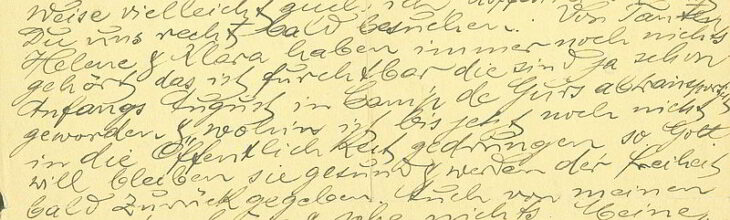 weise vielleicht auch ich
Du uns recht bald besuchen. Von Tanten
Helene & Klara haben immer noch nichts
gehört das ist furchtbar die sind ja schon
Anfangs August in Camp de Gurs abtransportirt
geworden & wohin ist bis jetzt noch nicht
in die Öffentlichkeit gedrungen so Gott
will bleiben sie gesund & werden der Freiheit
bald zurück gegeben Auch von meinen
nichts Meine